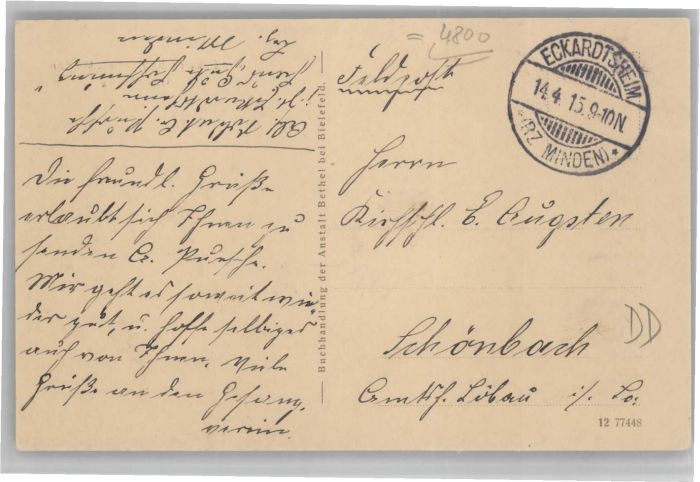 = 4800
Feldpost
ECKARDTSHEIM
14.4.15.9-10N.
(BZ MINDEN)
Herrn
Kirchschl. E. Augsten
Schönbach
Amtsh. Löbau i/ Sa.
DD
12 77448
Buchhandlung der Anstalt Bethel bei Bielefeld.
Die freundl. Grüße
erlaubt sich Ihnen zu
senden
Mir geht es soweit wie-
der gut, u. hoffe selbiges
auch von Ihnen, Viele
Grüße an den Gesang-
verein.
Abs.
Minden